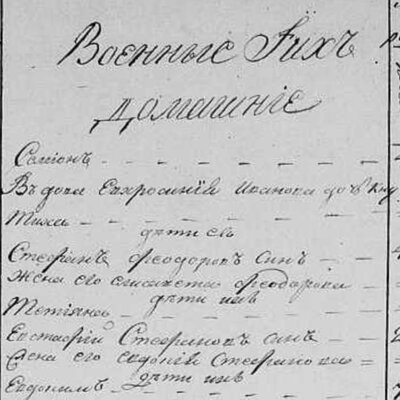 Военные Їихъ
домашніе
Семіонъ
Вдова Евхросинія Иванова дочь
дѣти ея
Стефанъ Феодоровъ синъ
Жена его Елисавета Феодорова
дѣти ихъ
Тетіяна
Евстафій Стефановъ синъ
Жена его Евдокія Стефанова
дѣти ихъ
Евдокимъ